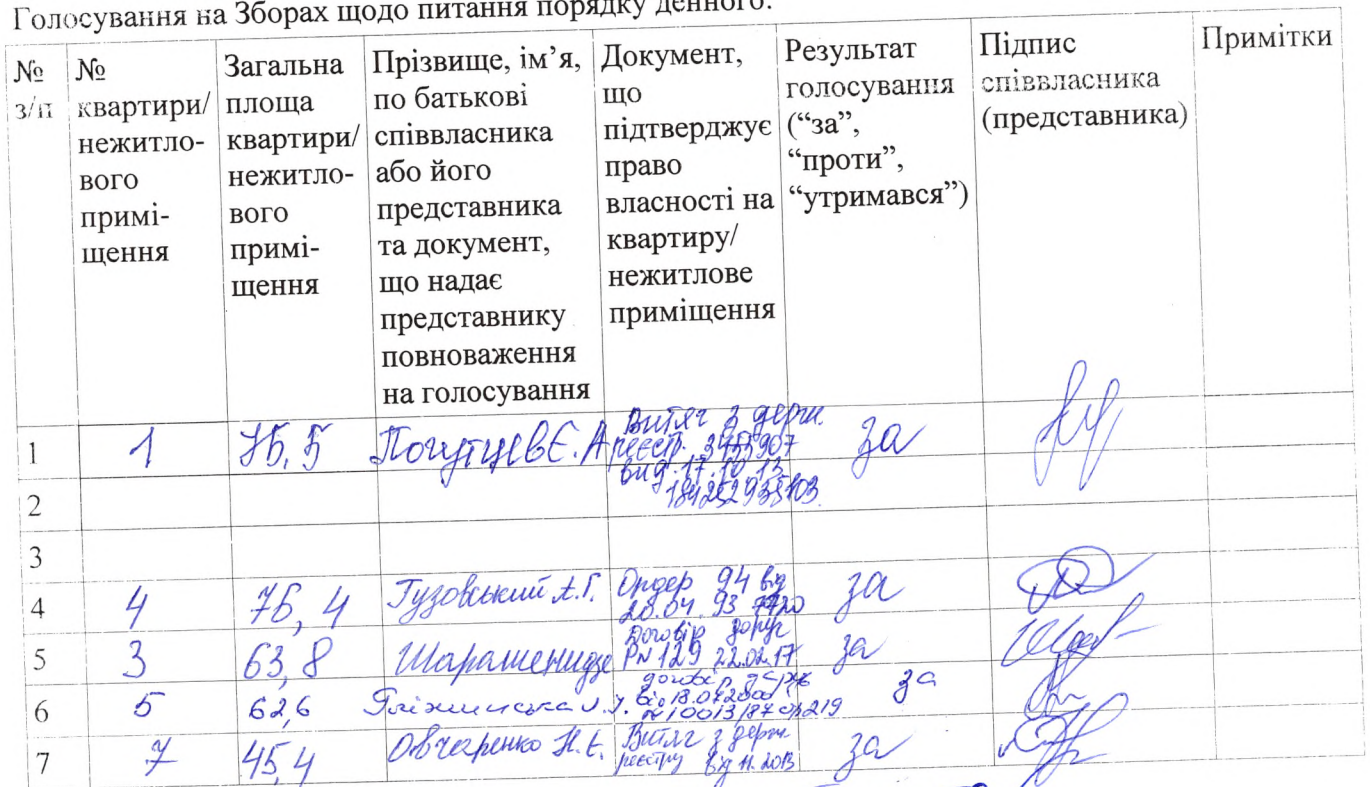 Голосування на Зборах щодо питання порядку денного:
№ з/п
№ квартири/ нежитло- вого примі- щення
Загальна площа квартири/ нежитло- вого примі- щення
Прізвище, ім’я, по батькові співвласника або його представника та документ, що надає представнику повноваження на голосування
Документ, що підтверджує право власності на квартиру/ нежитлове приміщення
Результат голосування (“за”, “проти”, “утримався”)
Підпис співвласника (представника)
Примітки
1 1 75,5 Є.А Витяг з держ. реєстр. 3455907 від 17.10.13 за
2
3
4 4 75,4 Гузовський А.Г. Ордер 94 від 20.04.93 за
5 3 63,8 Договір PN 129 22.02.17 за
6 5 62,6 договір за
7 7 45,4 Овчаренко Н.Є. Витяг з держ реєстру від 11.2013 за